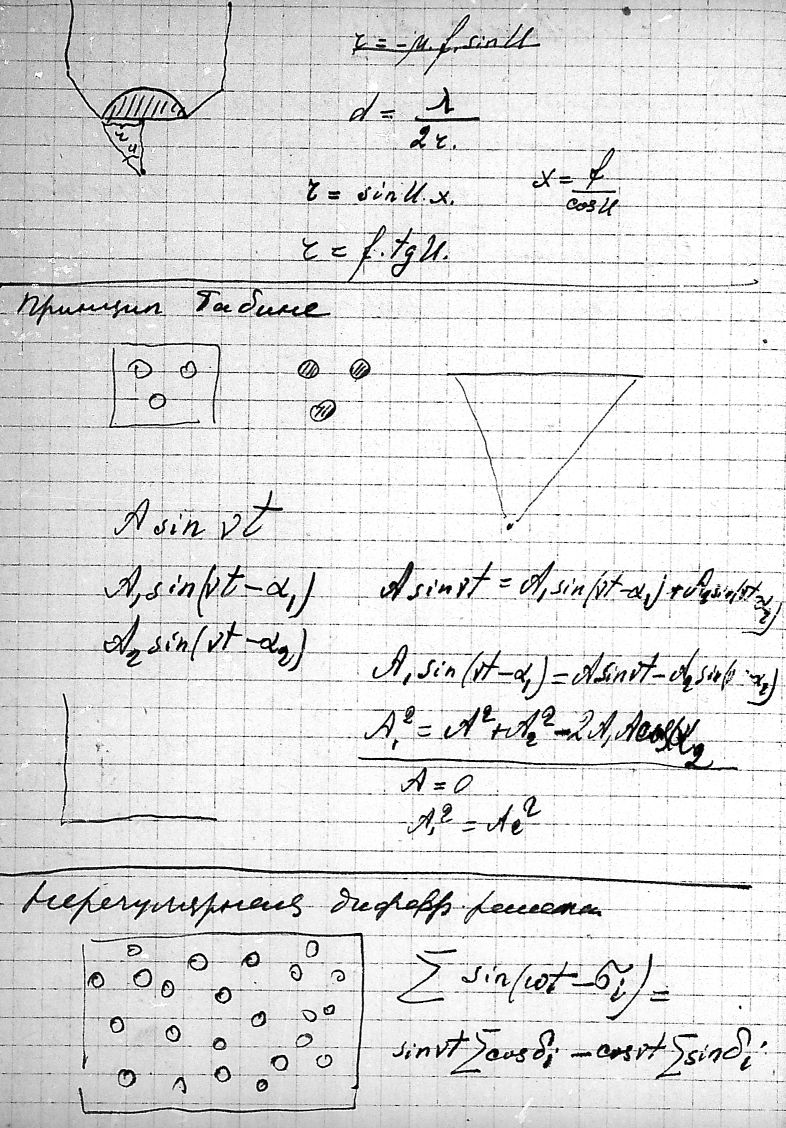 r = -μ. f. sin U
d = λ / 2r.
r = sin U. x.
x = f / cos U
r = f. tg U.
r
u
Принцип Бабине
A sin νt
A₁ sin(νt-α₁)
A sin νt = A₁ sin(νt-α₁) + A₂ sin(νt-α₂)
A₂ sin(νt-α₂)
A₁ sin(νt-α₁) = A sin νt - A₂ sin(ν -α₂)
A₁² = A² + A₂² - 2A₁A cos α₂
A = 0
A₁² = A₂²
Нерегулярная дифракц. решетка
∑ sin(ωt - δᵢ) =
sin νt ∑ cos δᵢ - cos νt ∑ sin δᵢ